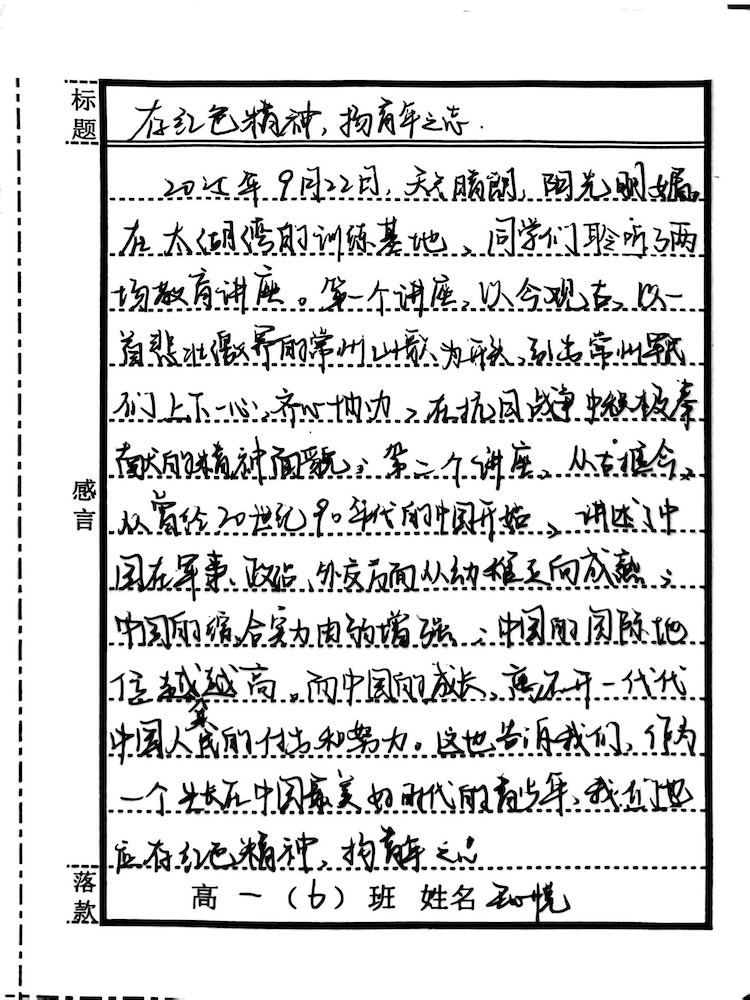 标题
存红色精神，抱青年之志.
2025年9月22日，天气晴朗，阳光明媚。
在太湖湾的训练基地、同学们聆听了两
场教育讲座。第一个讲座、以今观古、以一
首悲壮激昂的常州山歌为开头，引出常州军民
们上下一心、齐心协力、在抗日战争中积极奉
献的精神面貌；第二个讲座、从古推今、
从曾经20世纪90年代的中国开始、讲述了中
国在军事、政治、外交方面从幼稚走向成熟；
中国的综合实力由弱增强；中国的国际地
位越越高。而中国的成长、离不开一代代
中国人民的付出和努力。这也告诉我们、作为
一个生长在中国最美好时代的青少年、我们也
应存红色精神、抱青年之志
感言
落款
高一（6）班 姓名